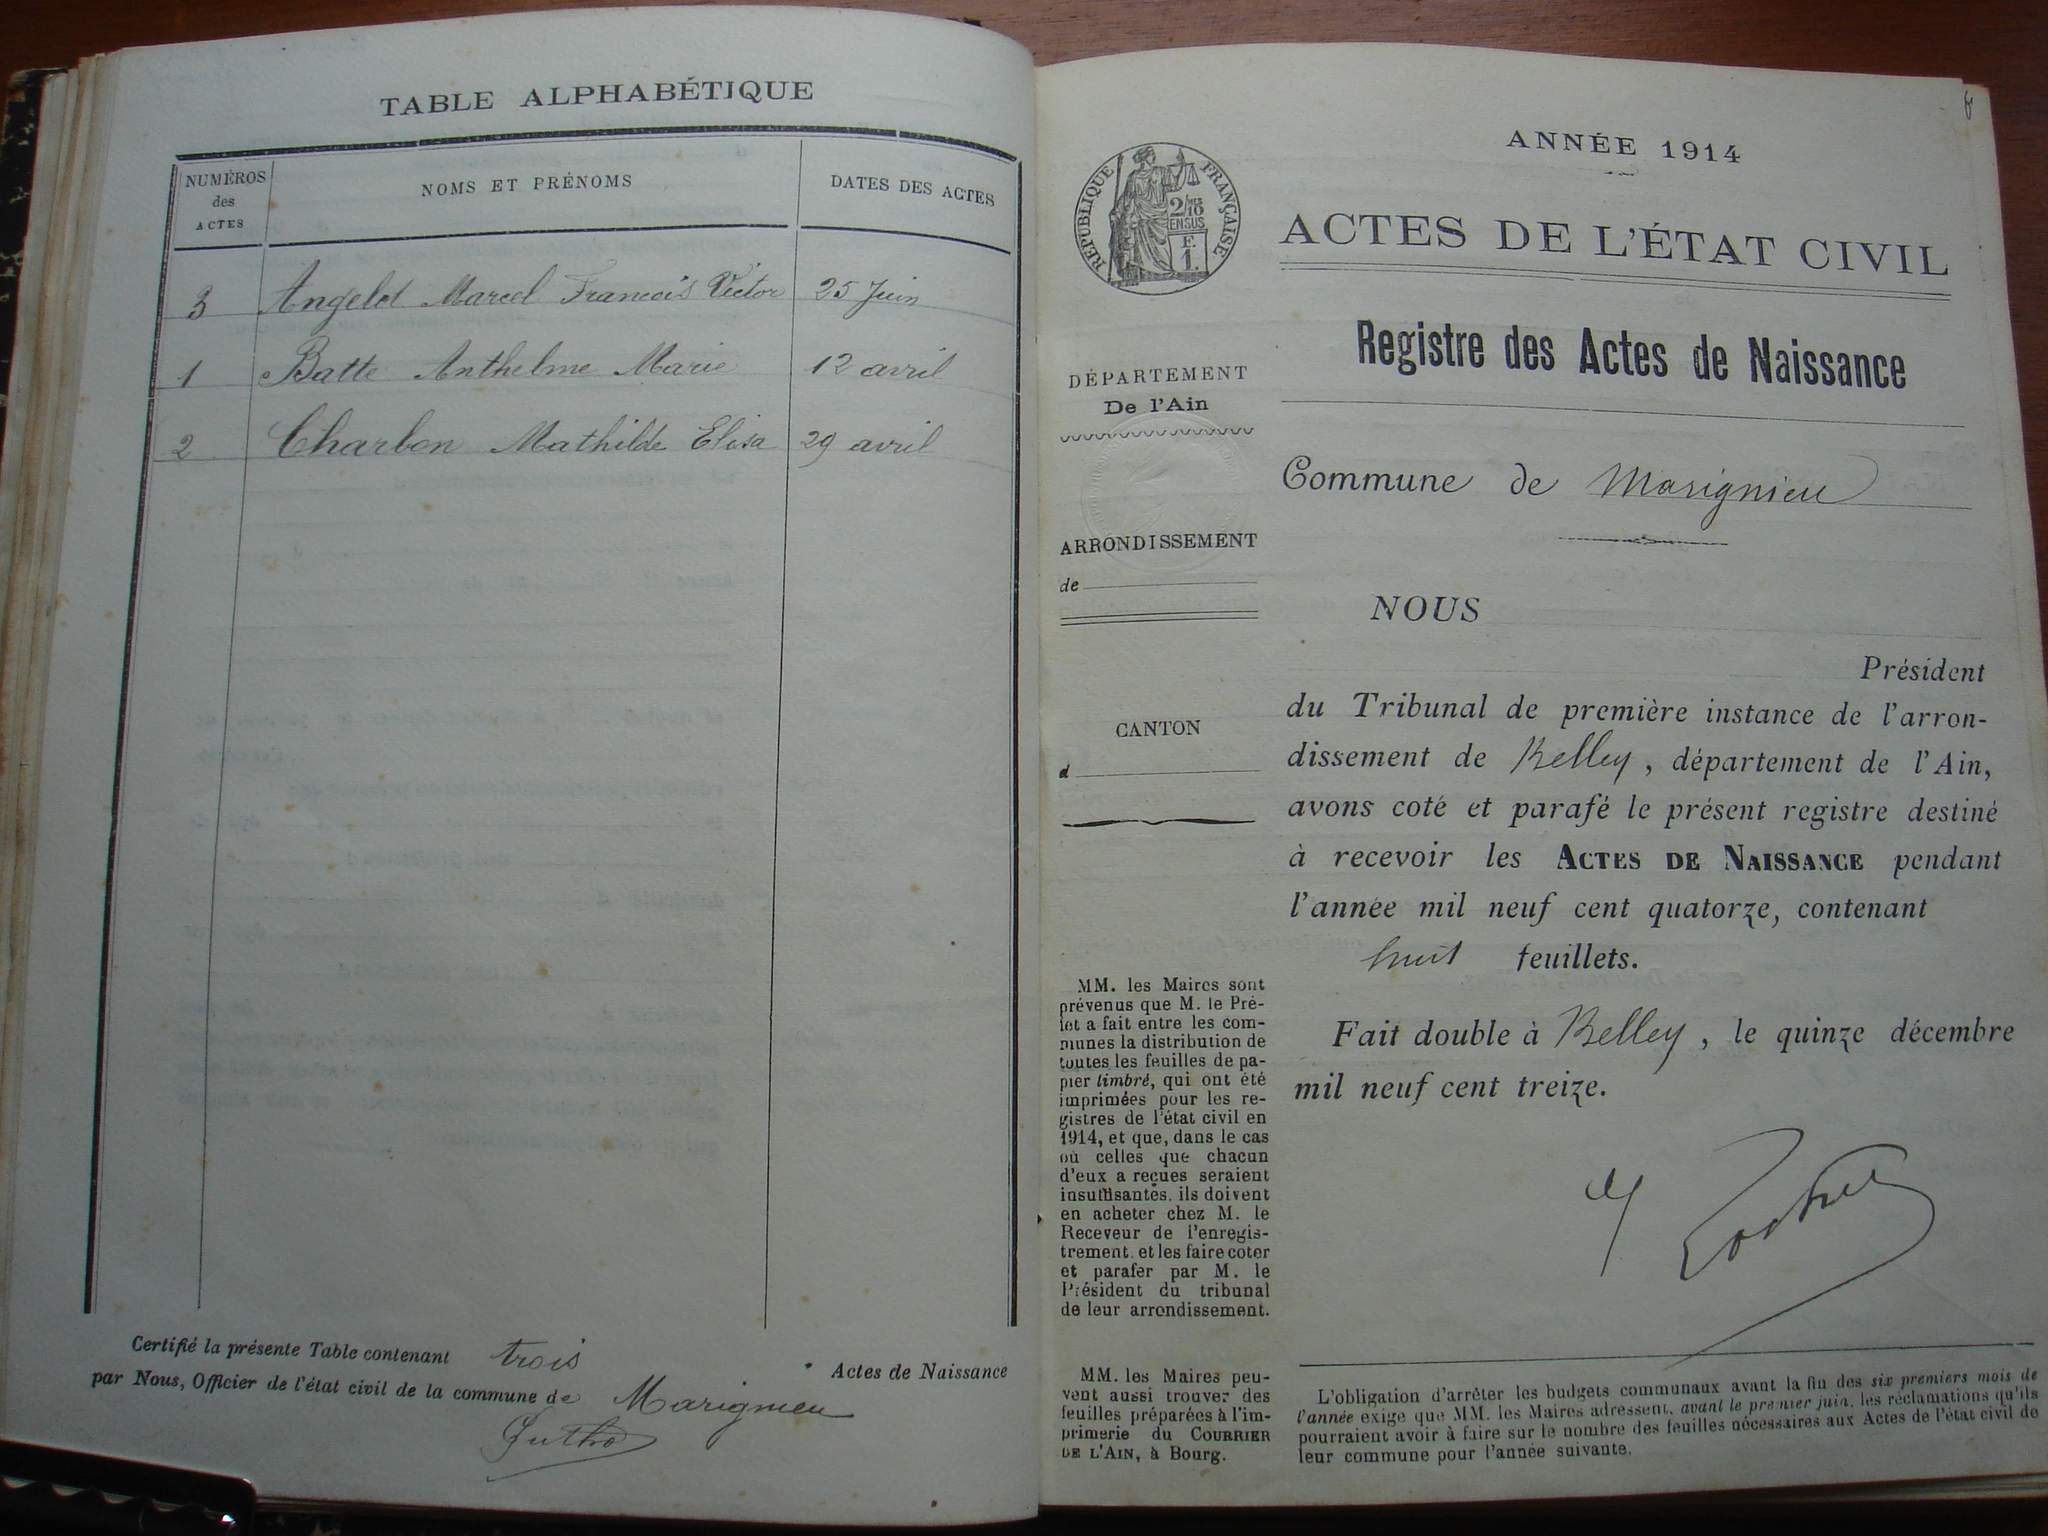 TABLE ALPHABÉTIQUE
NUMÉROS
des
ACTES
NOMS ET PRÉNOMS
DATES DES ACTES
3 Angelot Marcel Francois Victor 25 Juin
1 Batte Anthelme Marie 12 avril
2 Charbon Mathilde Elisa 29 avril
Certifié la présente Table contenant trois Actes de Naissance
par Nous, Officier de l'état civil de la commune de Marignieu
ANNÉE 1914
RÉPUBLIQUE FRANÇAISE
2/10
EN SUS
F.
1.
ACTES DE L'ÉTAT CIVIL
Registre des Actes de Naissance
DÉPARTEMENT
De l'Ain
Commune de Marignieu
ARRONDISSEMENT
de
CANTON
d
NOUS
Président
du Tribunal de première instance de l'arron-
dissement de Belley, département de l'Ain,
avons coté et parafé le présent registre destiné
à recevoir les ACTES DE NAISSANCE pendant
l'année mil neuf cent quatorze, contenant
huit feuillets.
Fait double à Belley, le quinze décembre
mil neuf cent treize.
MM. les Maires sont
prévenus que M. le Pré-
fet a fait entre les com-
munes la distribution de
toutes les feuilles de pa-
pier timbré, qui ont été
imprimées pour les re-
gistres de l'état civil en
1914, et que, dans le cas
où celles que chacun
d'eux a reçues seraient
insuffisantes, ils doivent
en acheter chez M. le
Receveur de l'enregis-
trement, et les faire coter
et parafer par M. le
Président du tribunal
de leur arrondissement.
MM. les Maires peu-
vent aussi trouver des
feuilles préparées à l'im-
primerie du COURRIER
DE L'AIN, à Bourg.
L'obligation d'arrêter les budgets communaux avant la fin des six premiers mois de
l'année exige que MM. les Maires adressent, avant le premier juin, les réclamations qu'ils
pourraient avoir à faire sur le nombre des feuilles nécessaires aux Actes de l'état civil de
leur commune pour l'année suivante.